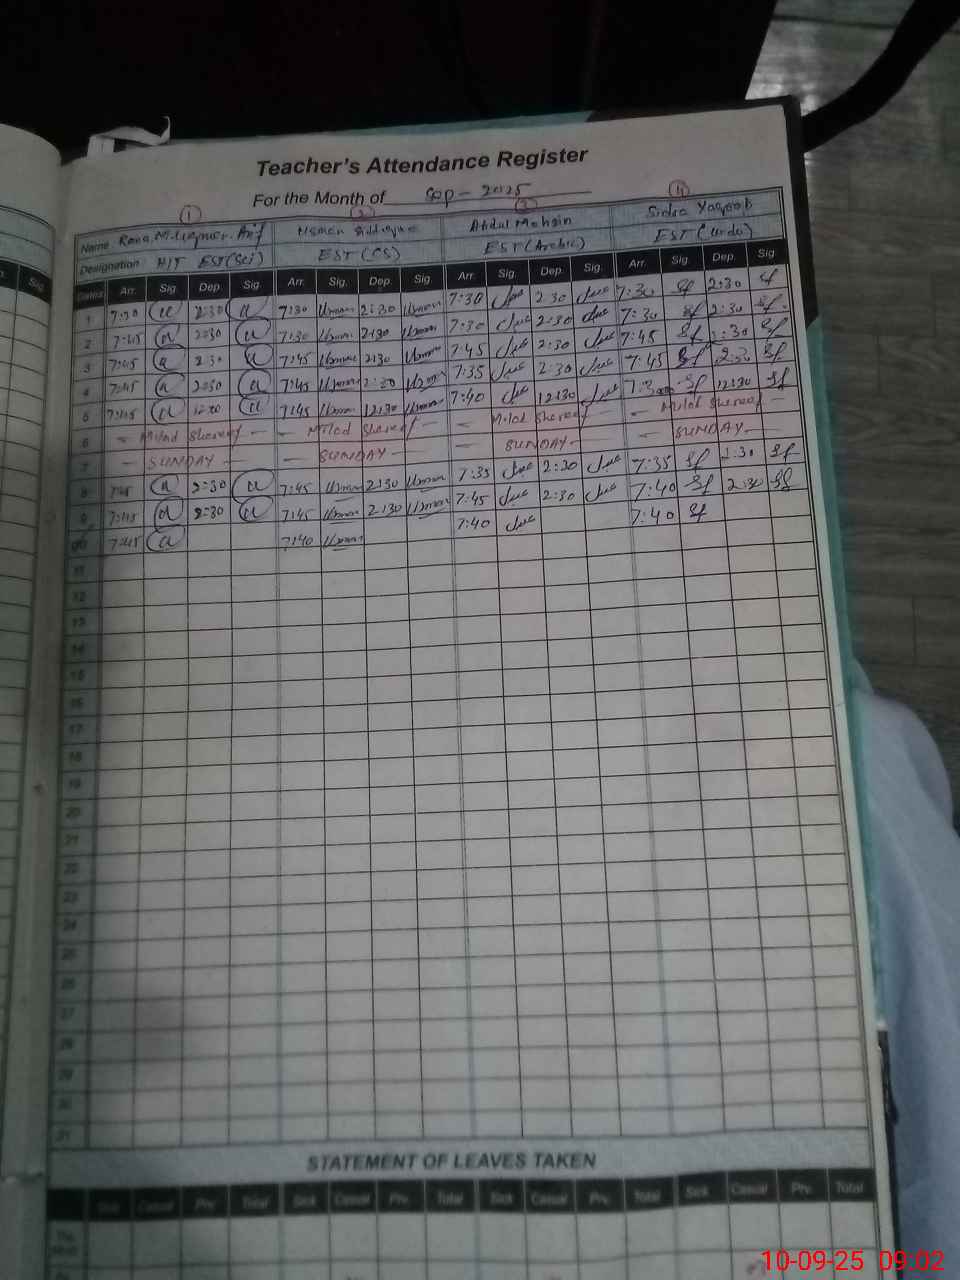 Teacher's Attendance Register
For the Month of Sep - 2025
1 2 3 4
Name Rana Arif Usman Siddique Abdul Mohsin Sidra Yaqoob
Designation HIT EST (Sci) EST (CS) EST (Arabic) EST (Urdu)
Dates Arr. Sig. Dep. Sig. Arr. Sig. Dep. Sig. Arr. Sig. Dep. Sig. Arr. Sig. Dep. Sig
1 7:30 2:30 7:30 Usman 2:30 Usman 7:30 2:30 7:30 Sf 2:30 Sf
2 7:45 2:30 7:30 Usman 2:30 Usman 7:30 2:30 7:30 Sf 2:30 Sf
3 7:45 2:30 7:45 Usman 2:30 Usman 7:45 2:30 7:45 Sf 2:30 Sf
4 7:45 2:30 7:45 Usman 2:30 Usman 7:35 2:30 7:45 Sf 2:30 Sf
5 7:45 7:45 Usman 12:30 Usman 7:40 12:30 Sf 12:30 Sf
6 - Milad Shareef - - Milad Shareef - - Milad Shareef - - Milad Shareef -
7 - SUNDAY - - SUNDAY - - SUNDAY - - SUNDAY -
8 7:45 2:30 7:45 Usman 2:30 Usman 7:35 2:30 7:35 Sf 2:30 Sf
9 7:45 2:30 7:45 Usman 2:30 Usman 7:45 2:30 7:40 Sf 2:30 Sf
10 7:45 7:40 Usman 7:40 7:40 Sf
11
12
13
14
15
16
17
18
19
20
21
22
23
24
25
26
27
28
29
30
31
STATEMENT OF LEAVES TAKEN
Sick Casual Prv. Total Sick Casual Prv. Total Sick Casual Prv. Total Sick Casual Prv. Total
10-09-25 09:02